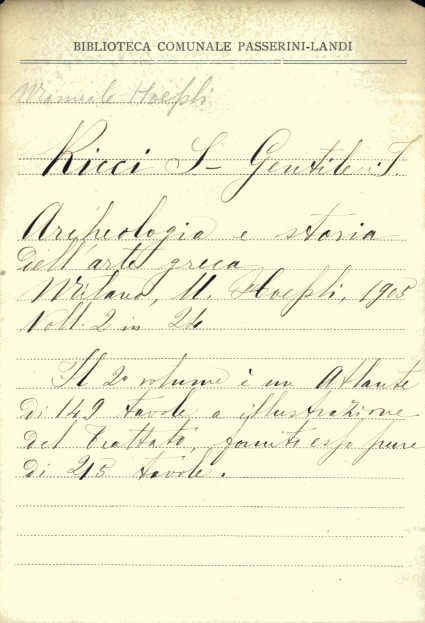 BIBLIOTECA COMUNALE PASSERINI-LANDI
Manuale Hoepli
Ricci S - Gentile I.
Archeologia e storia
dell'arte greca
Milano, U. Hoepli, 1905
Voll. 2 in 24
Il 2º volume è un Atlante
di 149 tavole a illustrazione
del Trattato, fornito esso pure
di 215 tavole.